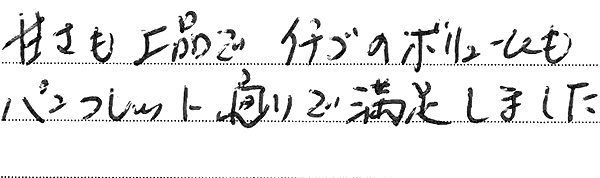 甘さも上品でイチゴのボリュームも
パンフレット通りで満足しました